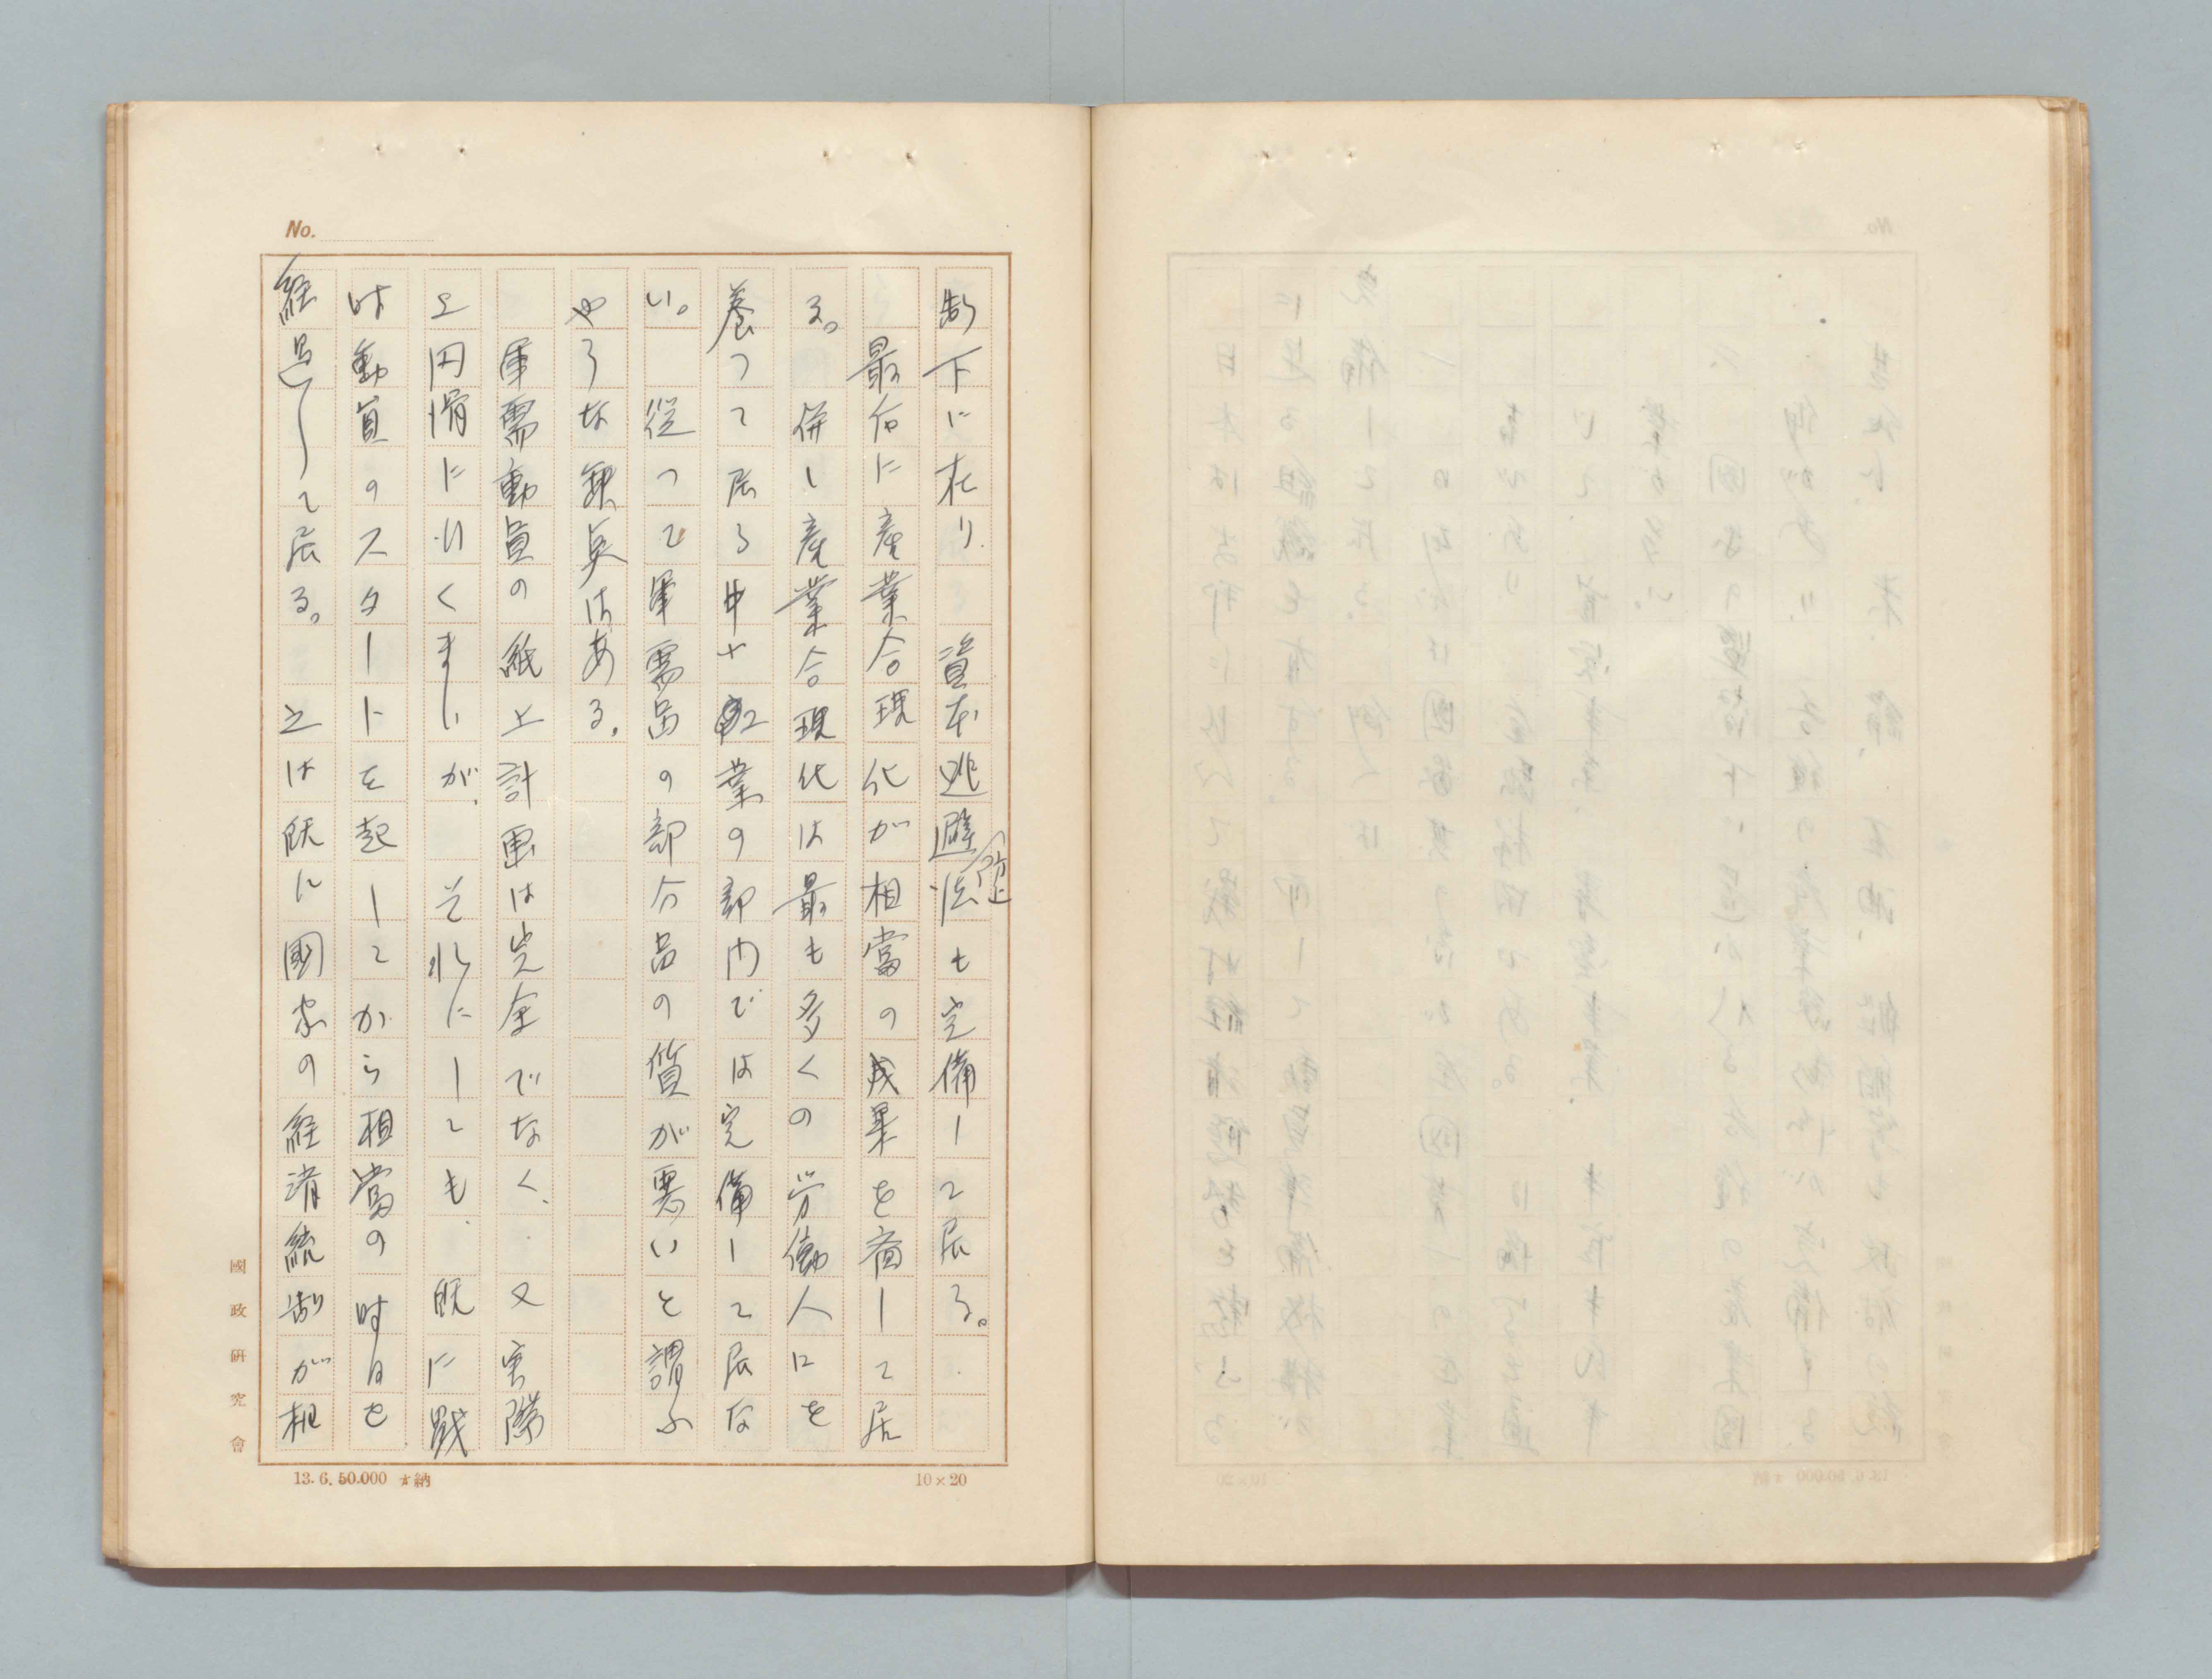 No.
制下に在り 資本逃避防止法も完備して居る。
最后に産業合理化が相當の成果を齎して居
る。 併し産業合理化は最も多くの労働人口を
養つて居る中小工業の部内では完備して居な
い。 従つて軍需品の部分品の質が悪いと謂ふ
やうな欠点はある。
軍需動員の紙上計画は完全でなく、 又実際
上円滑に行くまいが、 それにしても、既に戦
時動員のスタートを起してから相當の時日を
経過して居る。 之は既に國家の経済統制が相
國政研究會
13.6.50.000 納
10×20